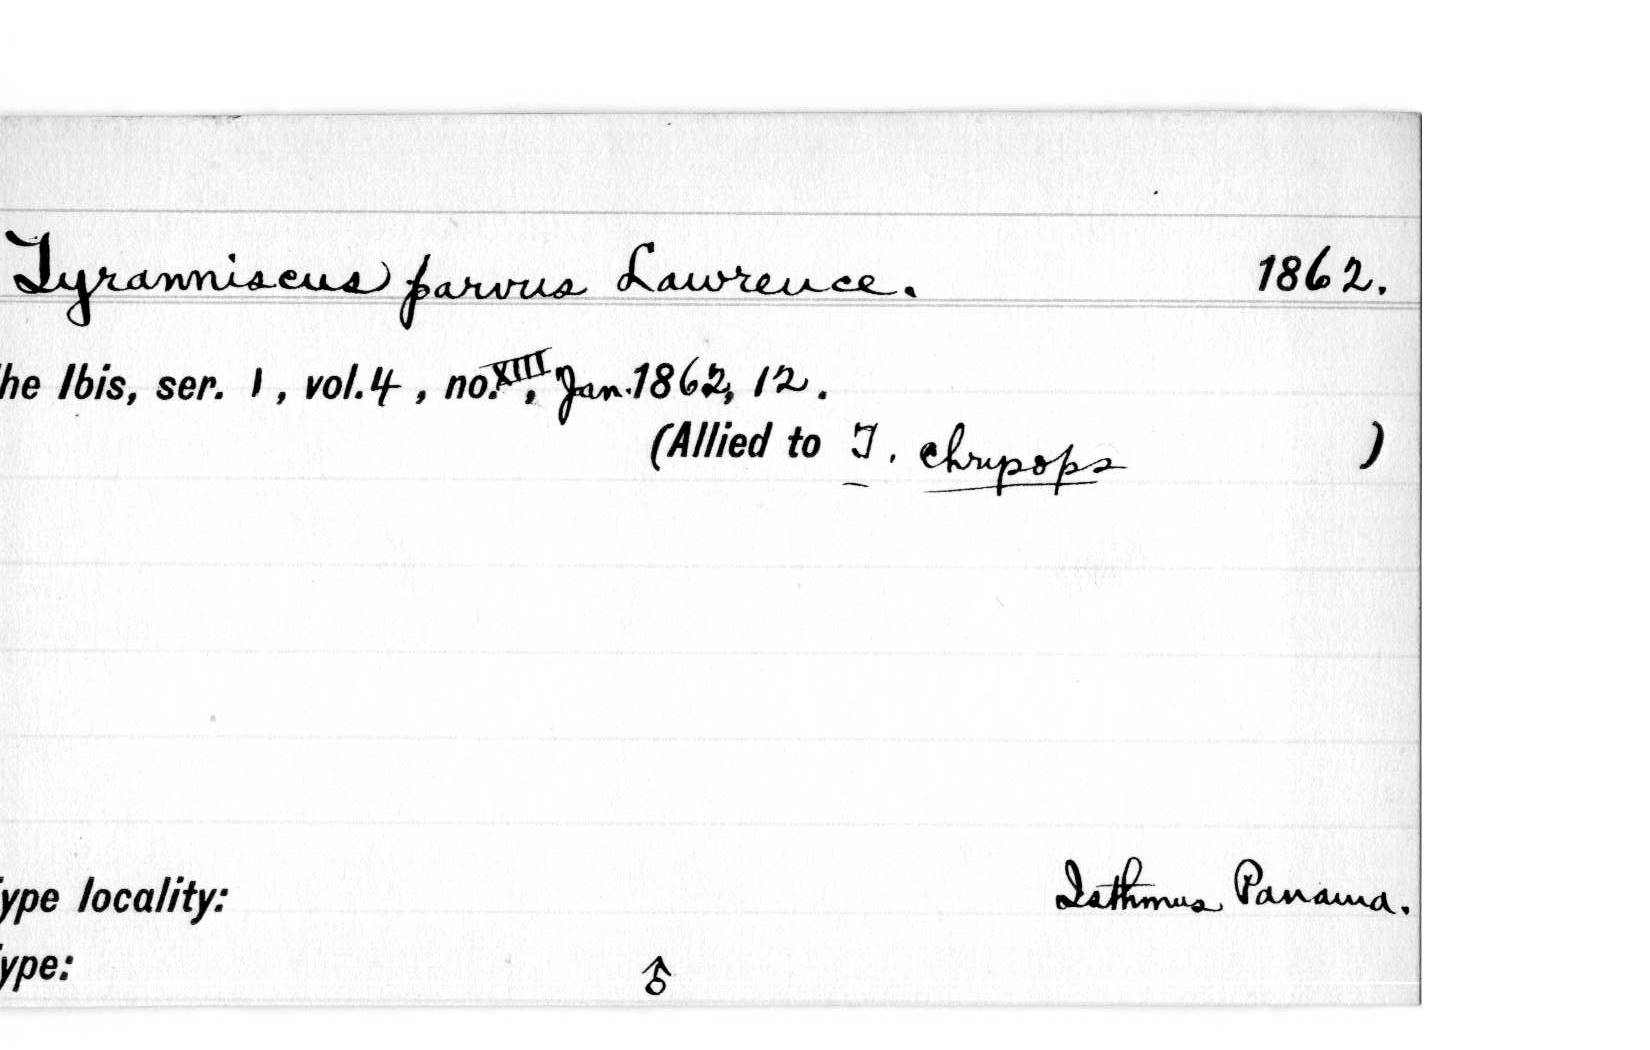 Tyranniscus parvus Lawrence. 1862.
he Ibis, ser. 1, vol. 4, no. XIII, Jan. 1862, 12.
(Allied to T. chrypops )
ype locality: Isthmus Panama.
ype: ♂